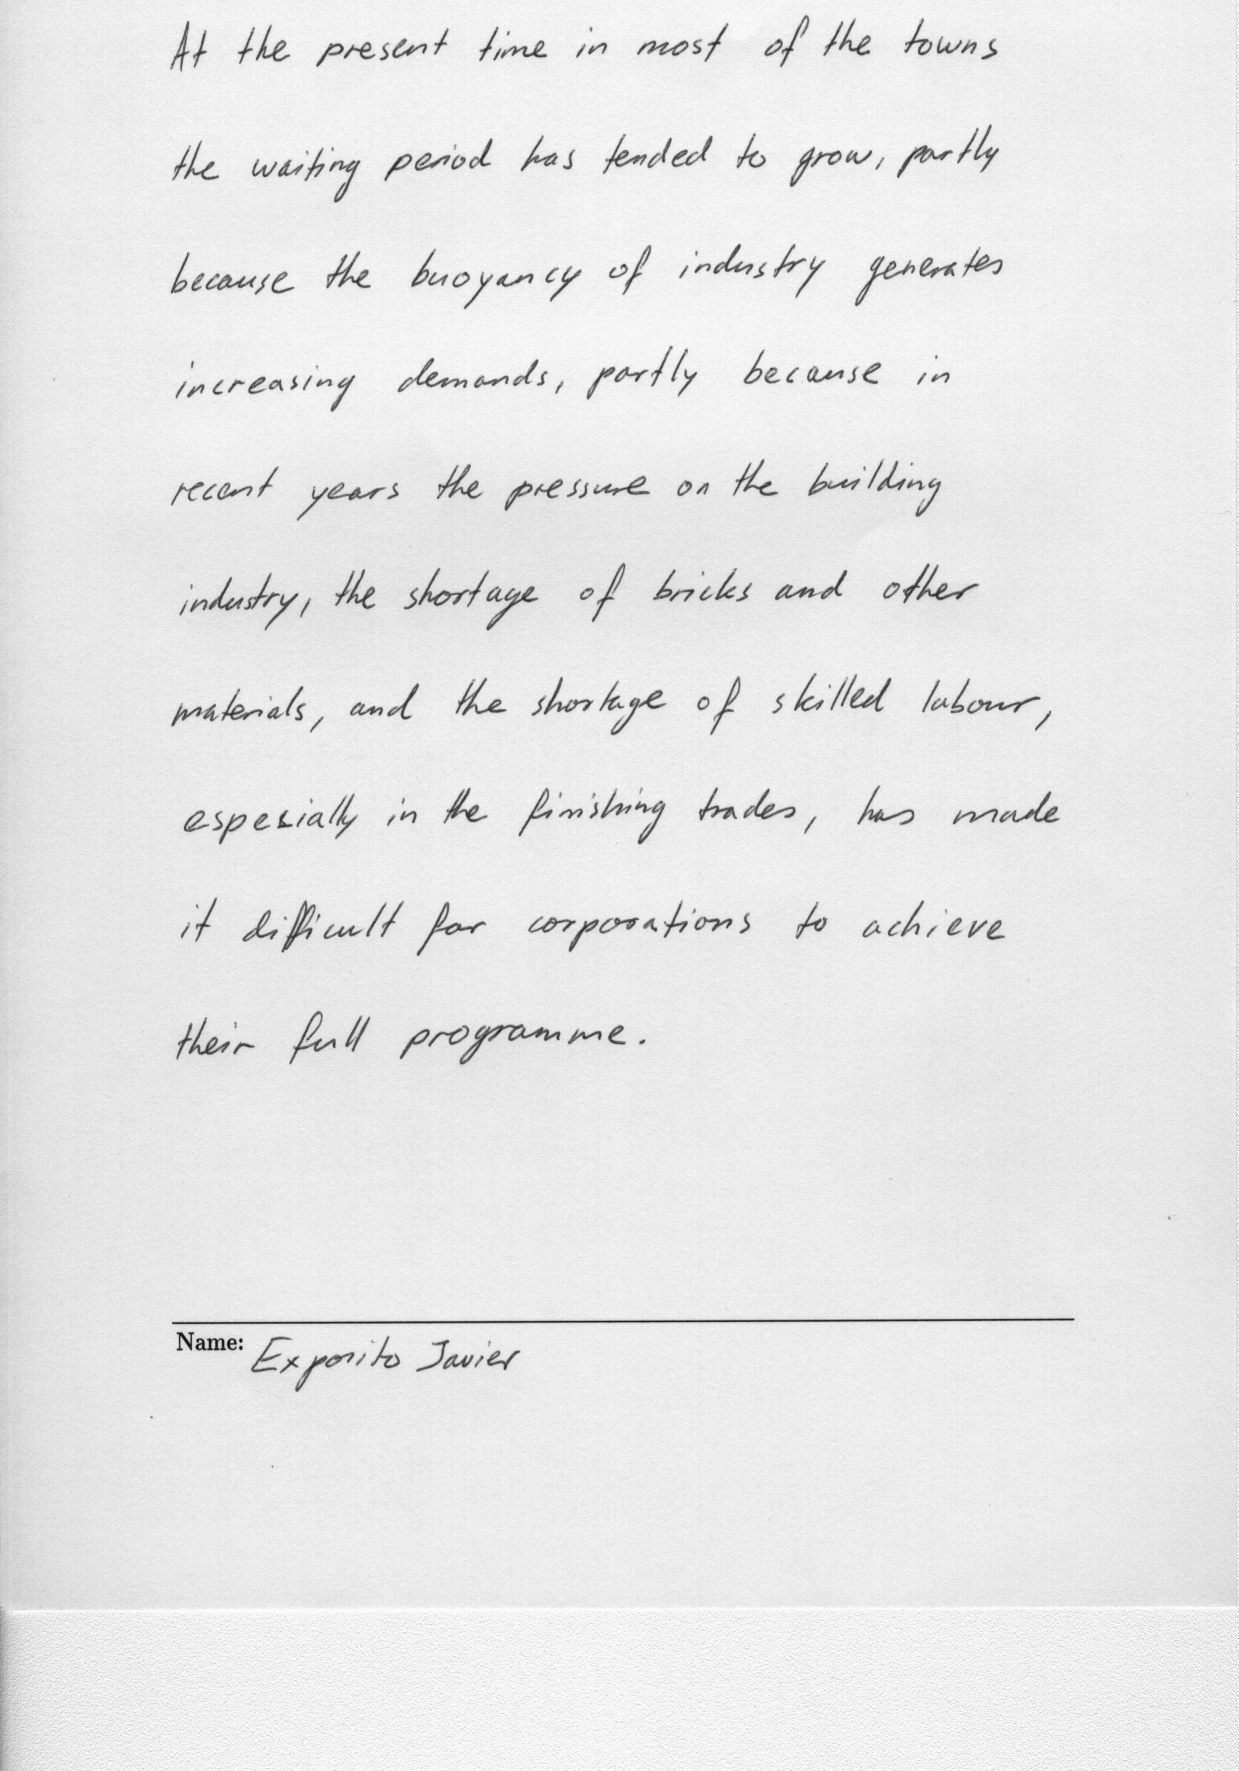 At the present time in most of the towns
the waiting period has tended to grow, partly
because the buoyancy of industry generates
increasing demands, partly because in
recent years the pressure on the building
industry, the shortage of bricks and other
materials, and the shortage of skilled labour,
especially in the finishing trades, has made
it difficult for corporations to achieve
their full programme.
Name: Exposito Javier